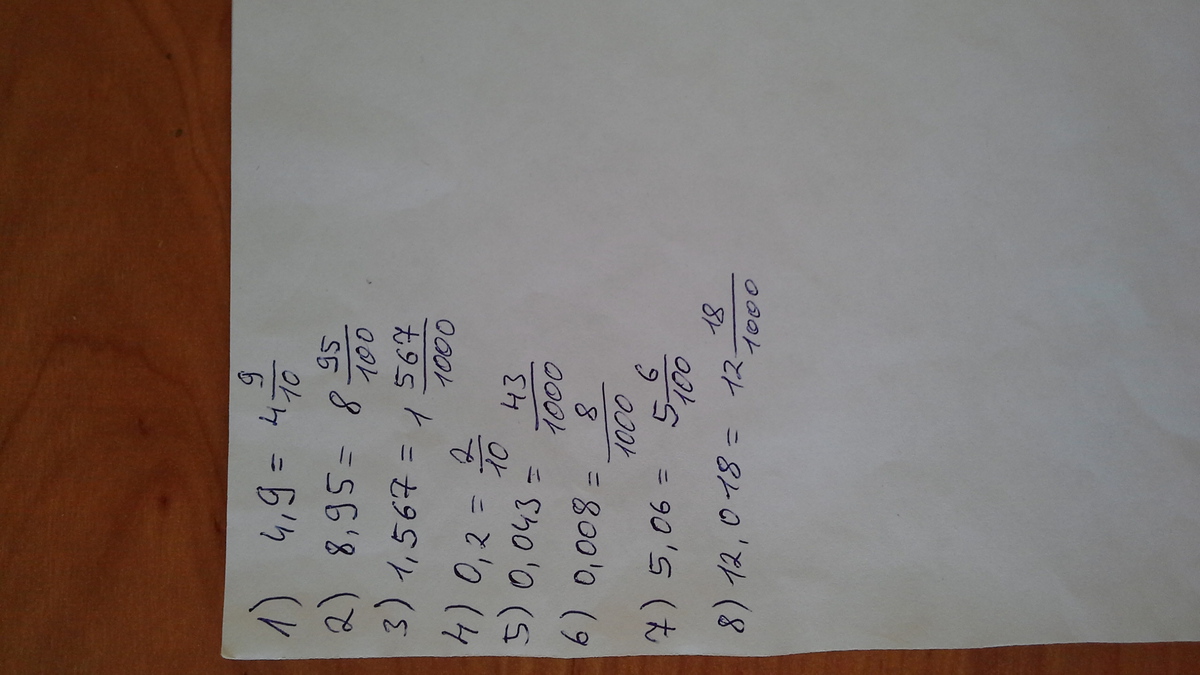 1) 4,9 = 4 9/10
2) 8,95 = 8 95/100
3) 1,567 = 1 567/1000
4) 0,2 = 2/10
5) 0,043 = 43/1000
6) 0,008 = 8/1000
7) 5,06 = 5 6/100
8) 12,018 = 12 18/1000